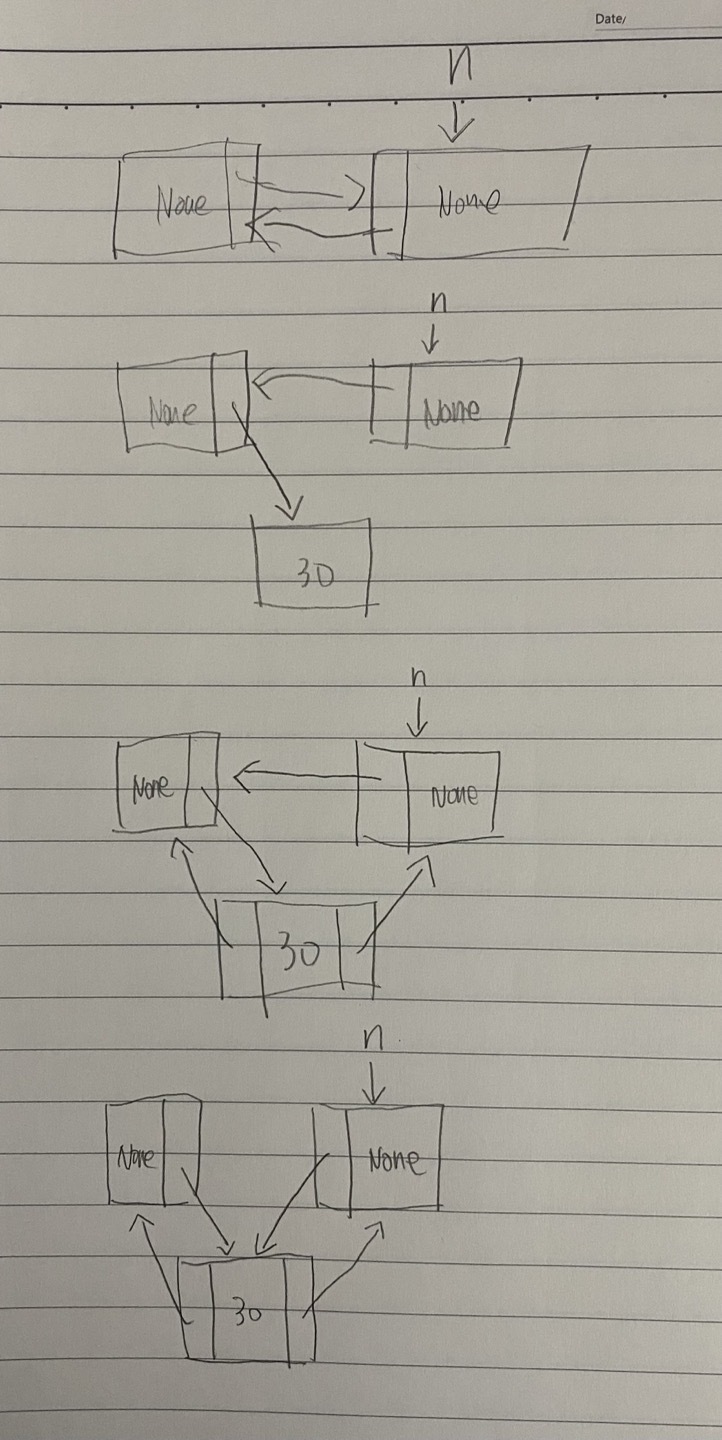 Date/
n
None None
n
None None
30
n
None None
30
n
None None
30